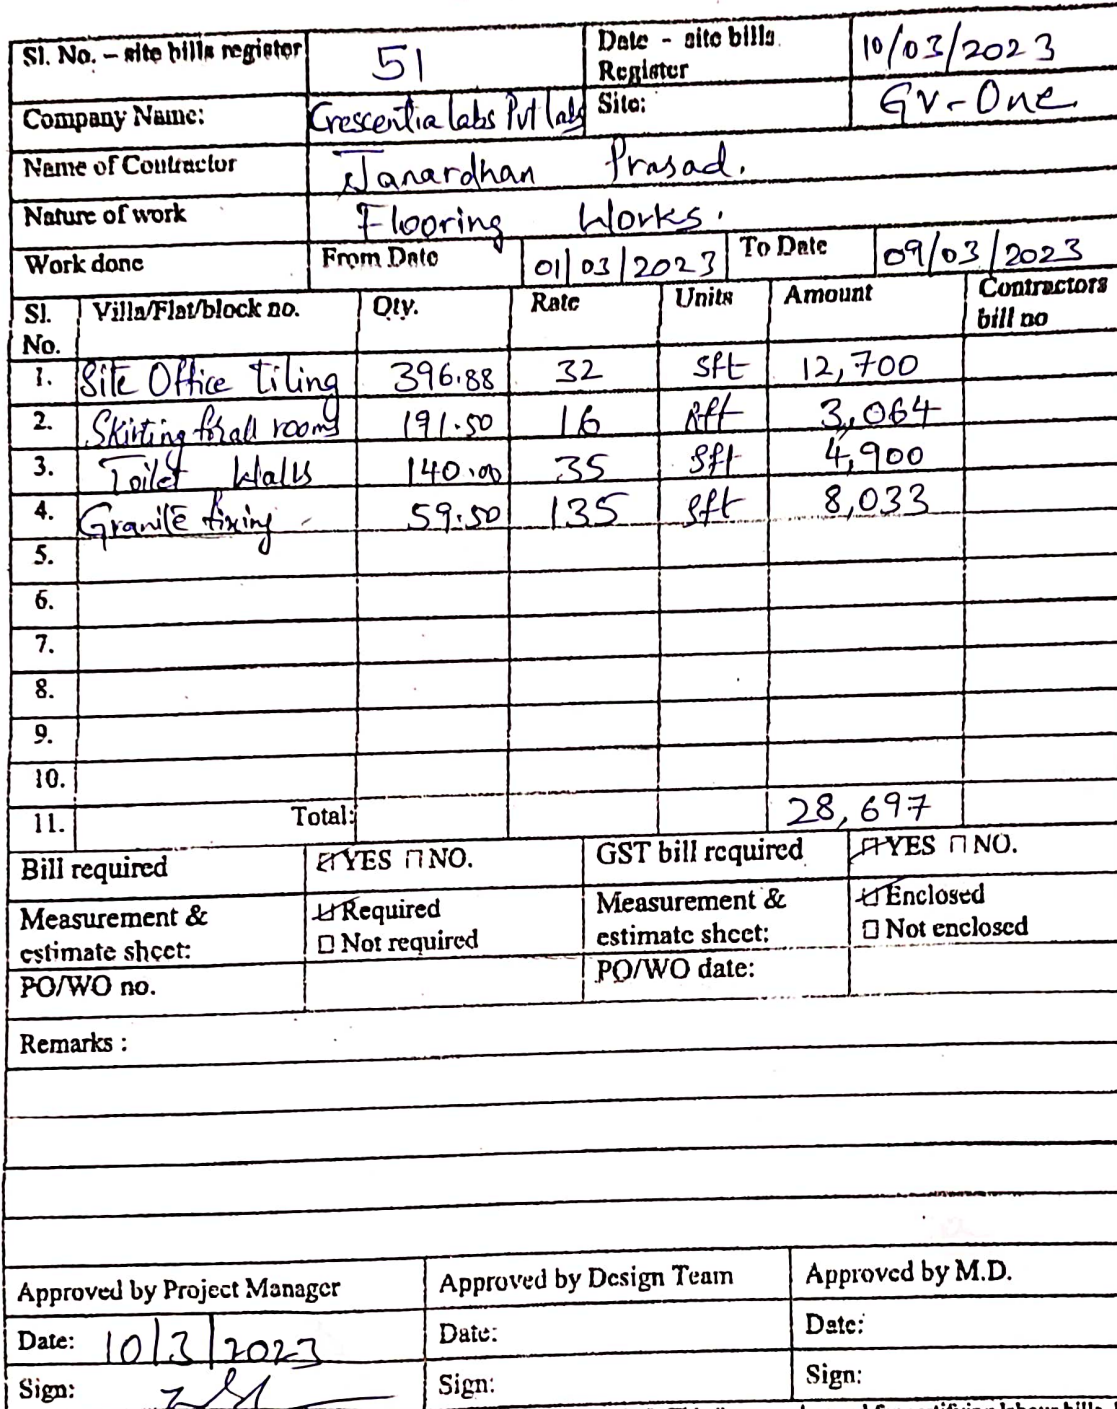 Sl. No. – site bills register 51 Date - site bills Register 10/03/2023
Company Name: Crescentia labs Pvt labs Site: GV-One
Name of Contractor Janardhan Prasad.
Nature of work Flooring Works.
Work done From Date 01/03/2023 To Date 09/03/2023
Sl. No. Villa/Flat/block no. Qty. Rate Units Amount Contractors bill no
1. Site Office tiling 396.88 32 Sft 12,700
2. Skirting for all rooms 191.50 16 Rft 3,064
3. Toilet Walls 140.00 35 Sft 4,900
4. Granite fixing 59.50 135 Sft 8,033
5.
6.
7.
8.
9.
10.
11. Total: 28,697
Bill required YES NO. GST bill required YES NO.
Measurement & estimate sheet: Required Not required Measurement & estimate sheet: Enclosed Not enclosed
PO/WO no. PO/WO date:
Remarks :
Approved by Project Manager Approved by Design Team Approved by M.D.
Date: 10/3/2023 Date: Date:
Sign: Sign: Sign: